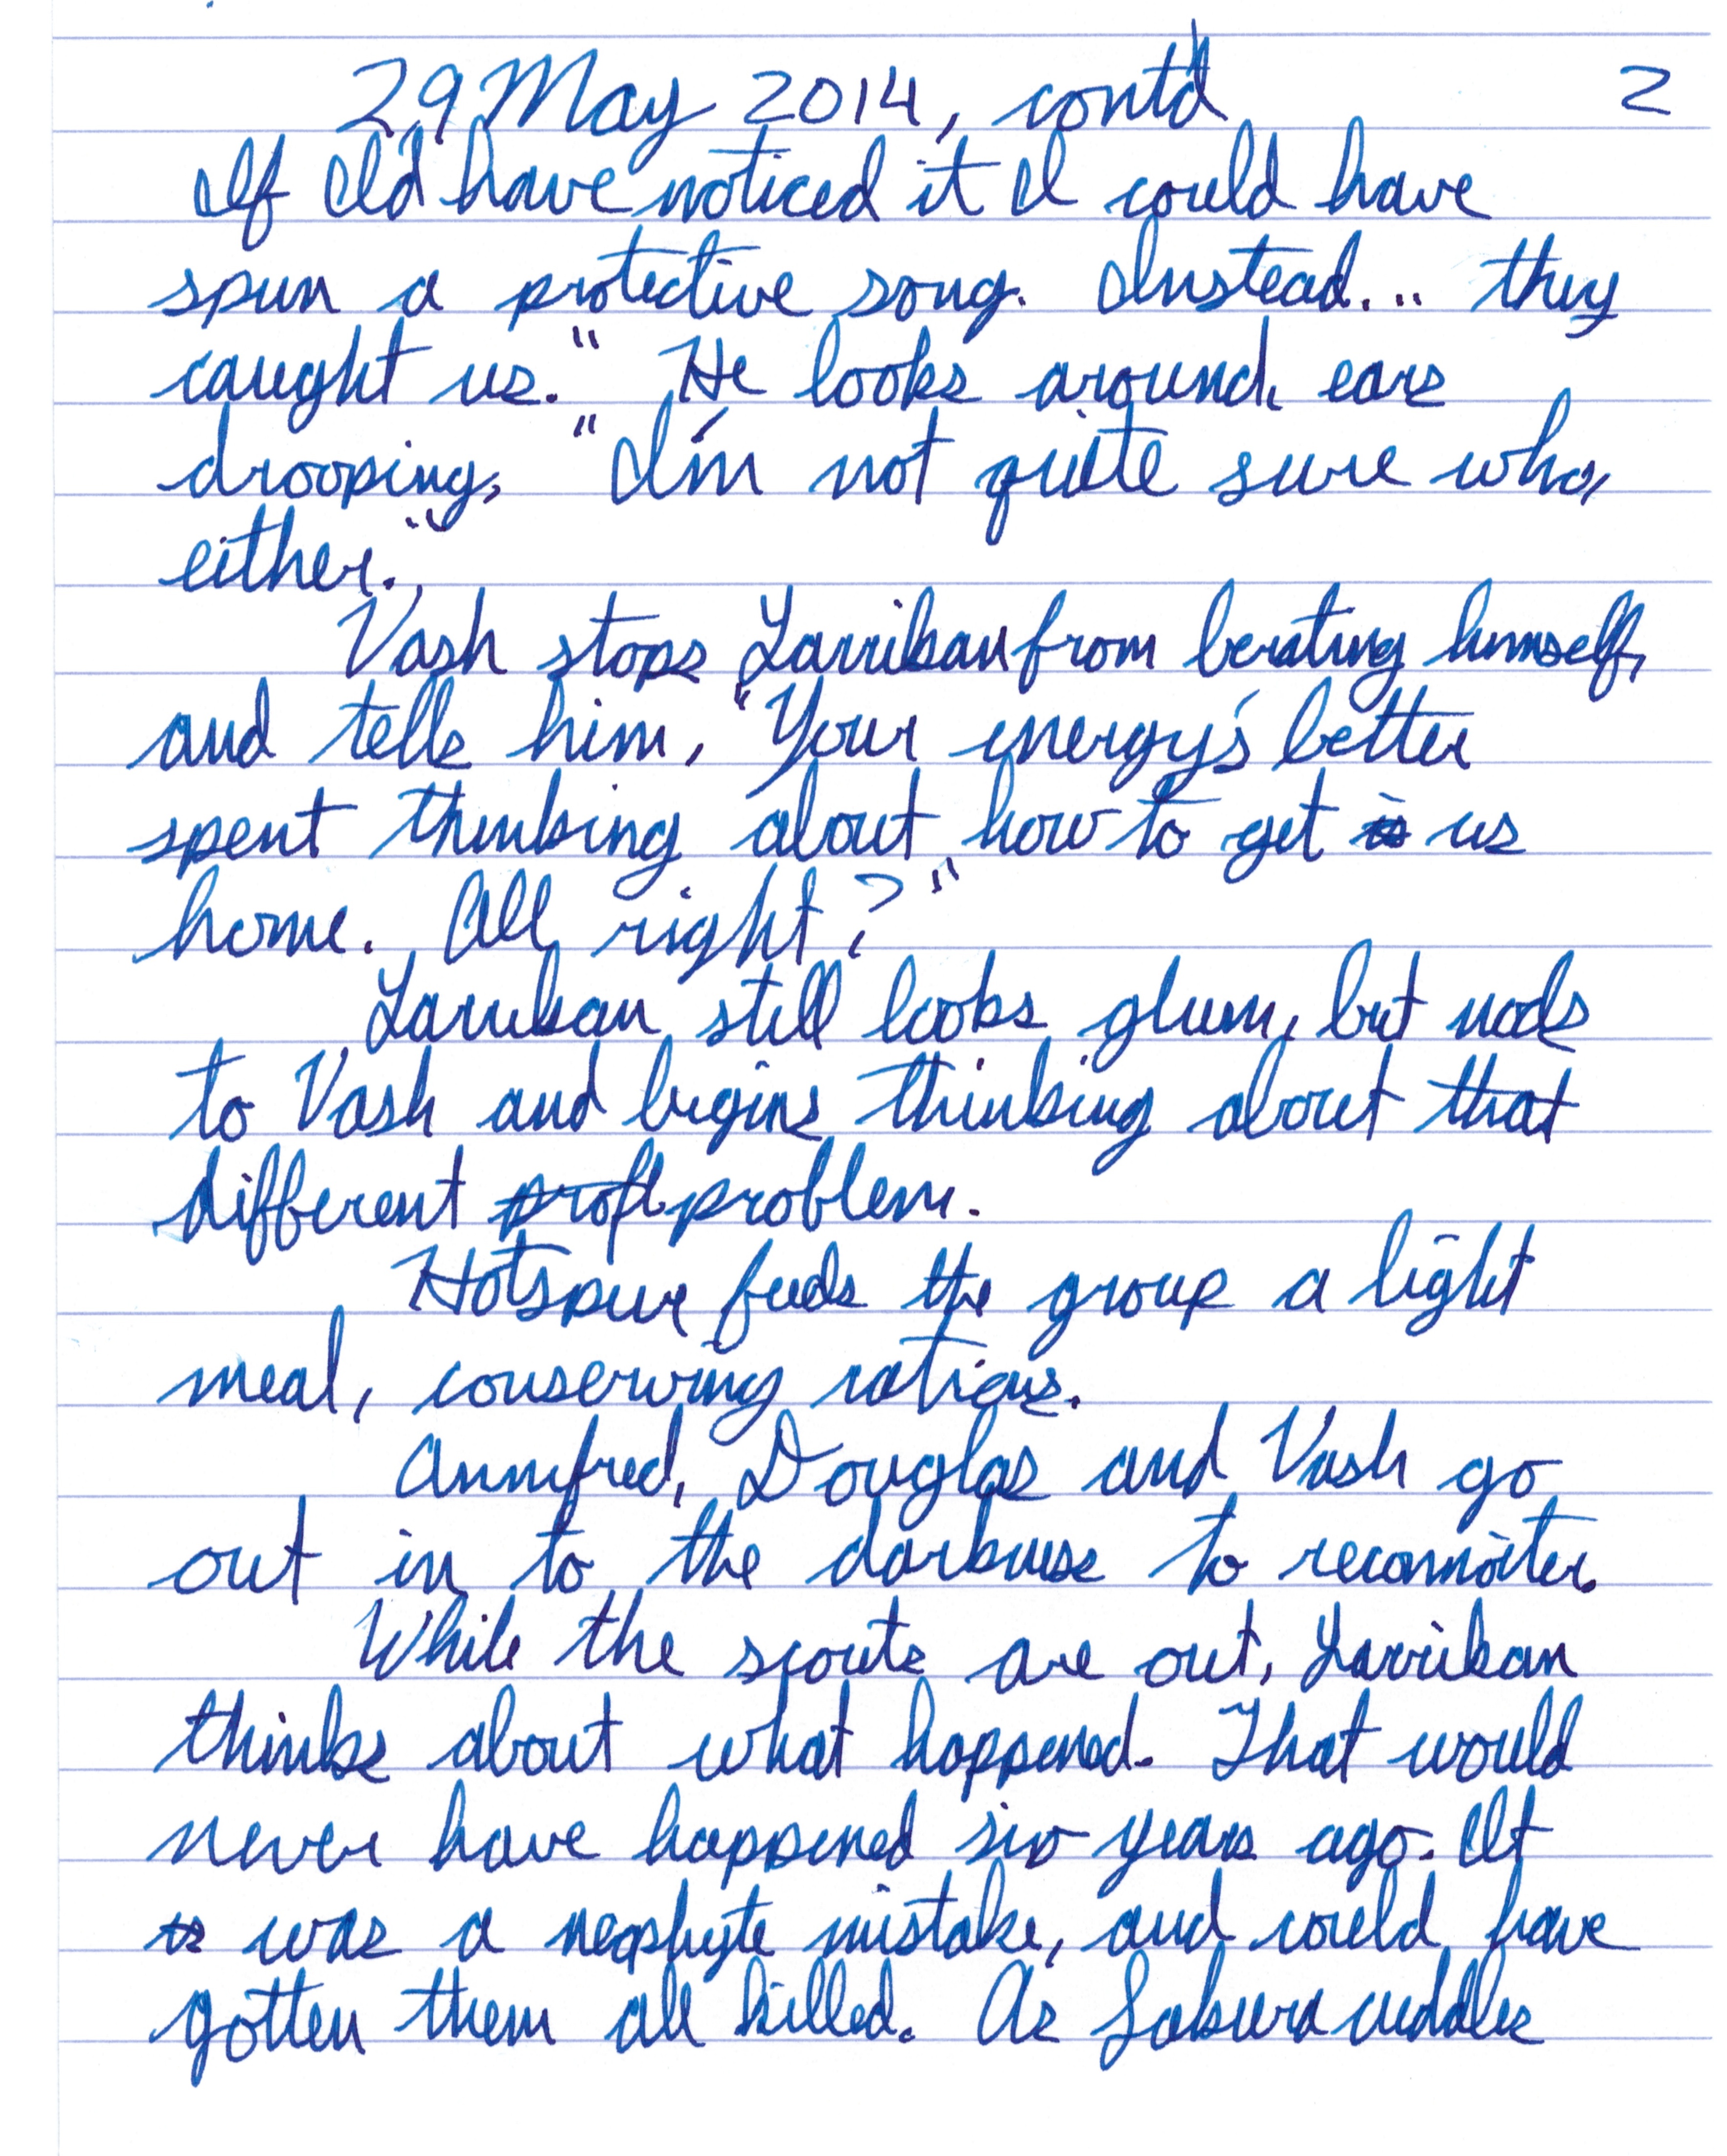 29 May 2014, cont'd 2
If I'd have noticed it I could have
spun a protective song. Instead... they
caught us." He looks around, ears
drooping, "I'm not quite sure who,
either."
Vash stops Larrikan from berating himself,
and tells him, "Your energy's better
spent thinking about how to get is us
home. All right?"
Larrikan still looks glum, but nods
to Vash and begins thinking about that
different profl problem.
Hotspur feeds the group a light
meal, conserving rations.
Annifred, Douglas and Vash go
out in to the darkness to reconnoiter.
While the scouts are out, Larrikan
thinks about what happened. That would
never have happened six years ago. It
is was a neophyte mistake, and could have
gotten them all killed. As Sakura cuddles